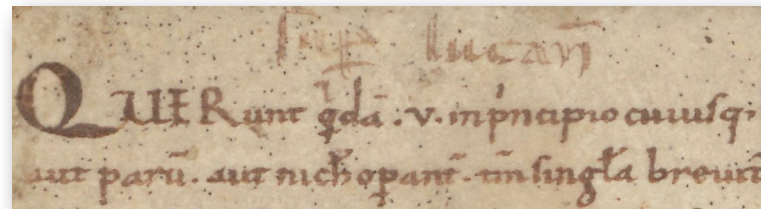 sup lucan̄
QUERunt q̇dā. v. inp̍ncipio cuiusq;
aut parū. aut nich̄ op̱ant̄. tn̄ singl̄a breuit̄